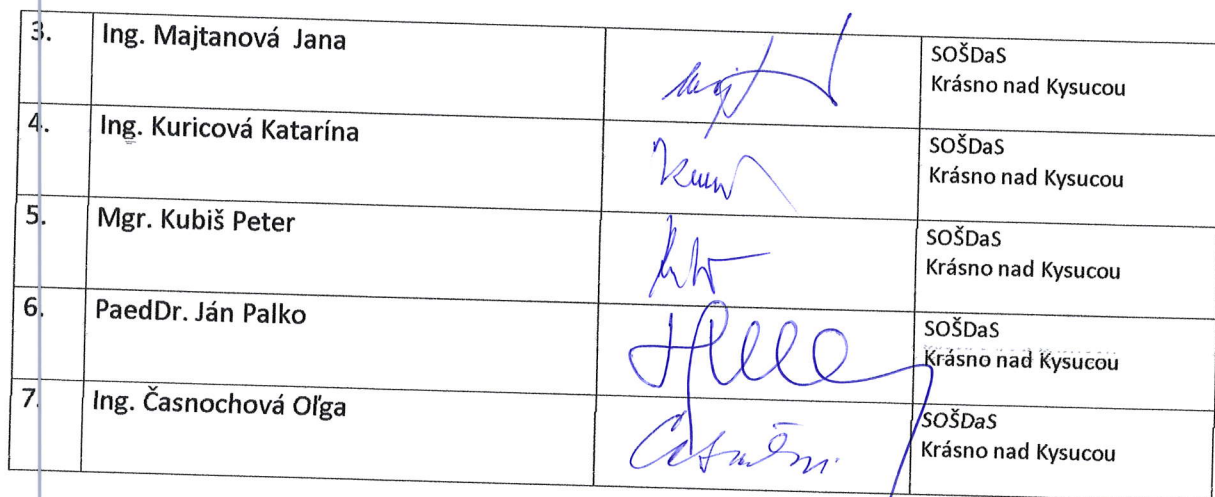 3. Ing. Majtanová Jana
SOŠDaS
Krásno nad Kysucou
4. Ing. Kuricová Katarína
SOŠDaS
Krásno nad Kysucou
5. Mgr. Kubiš Peter
SOŠDaS
Krásno nad Kysucou
6. PaedDr. Ján Palko
SOŠDaS
Krásno nad Kysucou
7. Ing. Časnochová Oľga
SOŠDaS
Krásno nad Kysucou